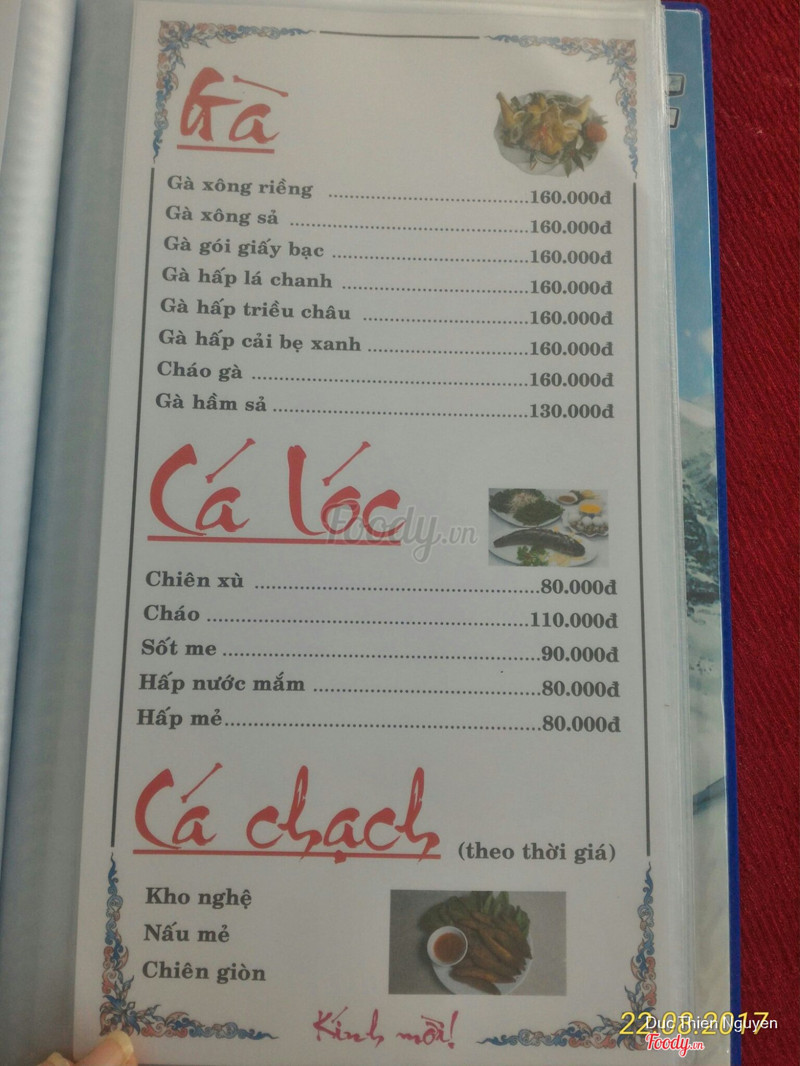 Gà
Gà xông riềng ........ 160.000đ
Gà xông sả ........ 160.000đ
Gà gói giấy bạc ........ 160.000đ
Gà hấp lá chanh ........ 160.000đ
Gà hấp triều châu ........ 160.000đ
Gà hấp cải bẹ xanh ........ 160.000đ
Cháo gà ........ 160.000đ
Gà hầm sả ........ 130.000đ
Cá lóc
Foody.vn
Chiên xù ........ 80.000đ
Cháo ........ 110.000đ
Sốt me ........ 90.000đ
Hấp nước mắm ........ 80.000đ
Hấp mẻ ........ 80.000đ
Cá chạch (theo thời giá)
Kho nghệ
Nấu mẻ
Chiên giòn
Kính mời!
22.03.2017
Duc Thien Nguyen
Foody.vn